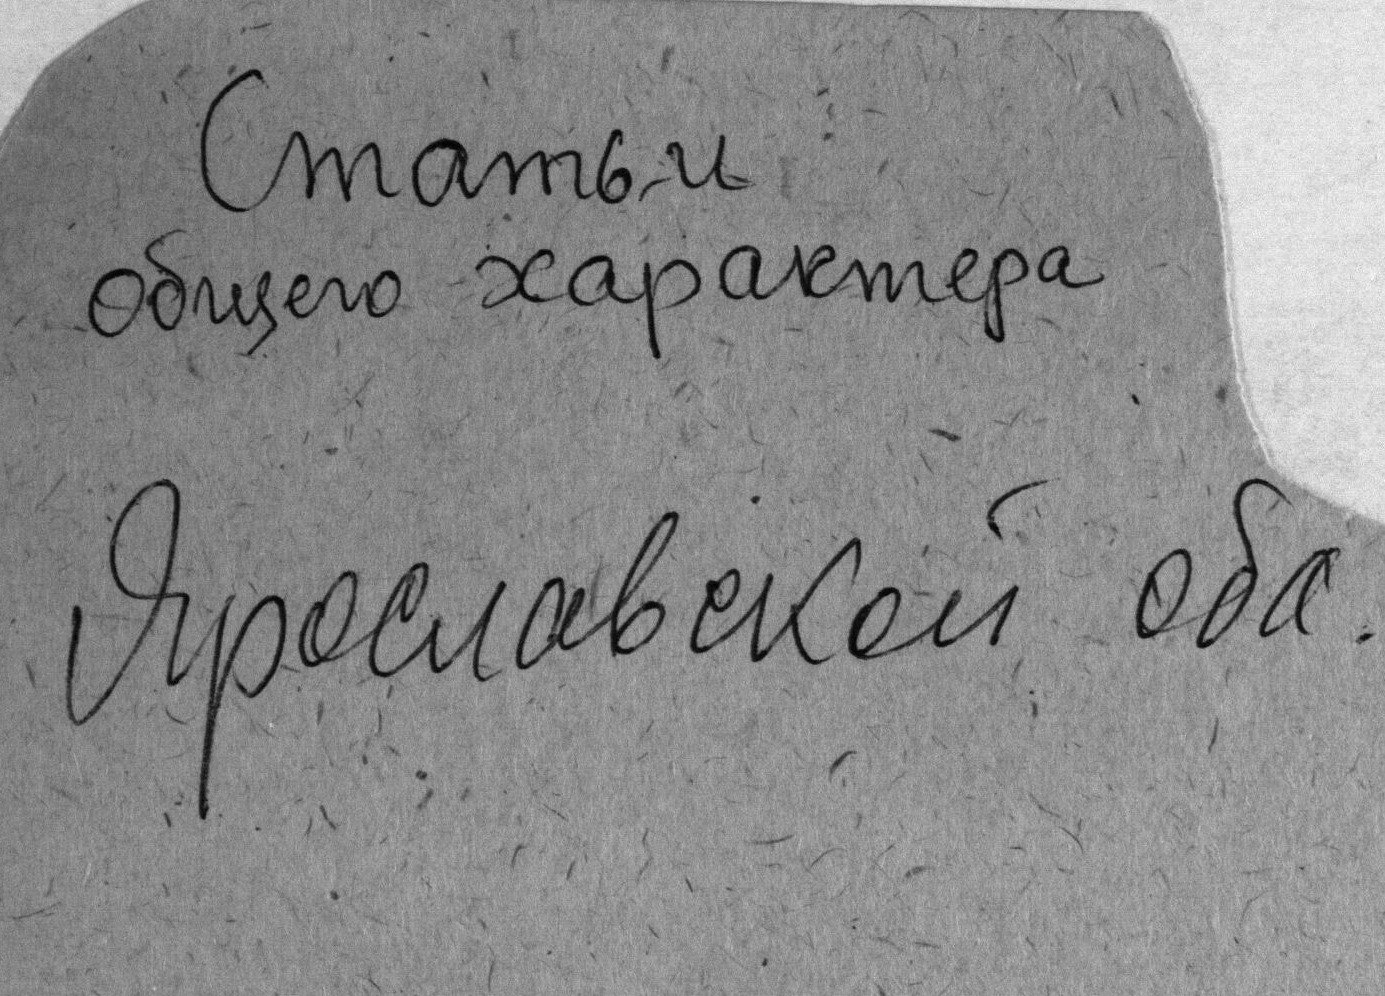 Статьи
общего характера
Ярославской обл.